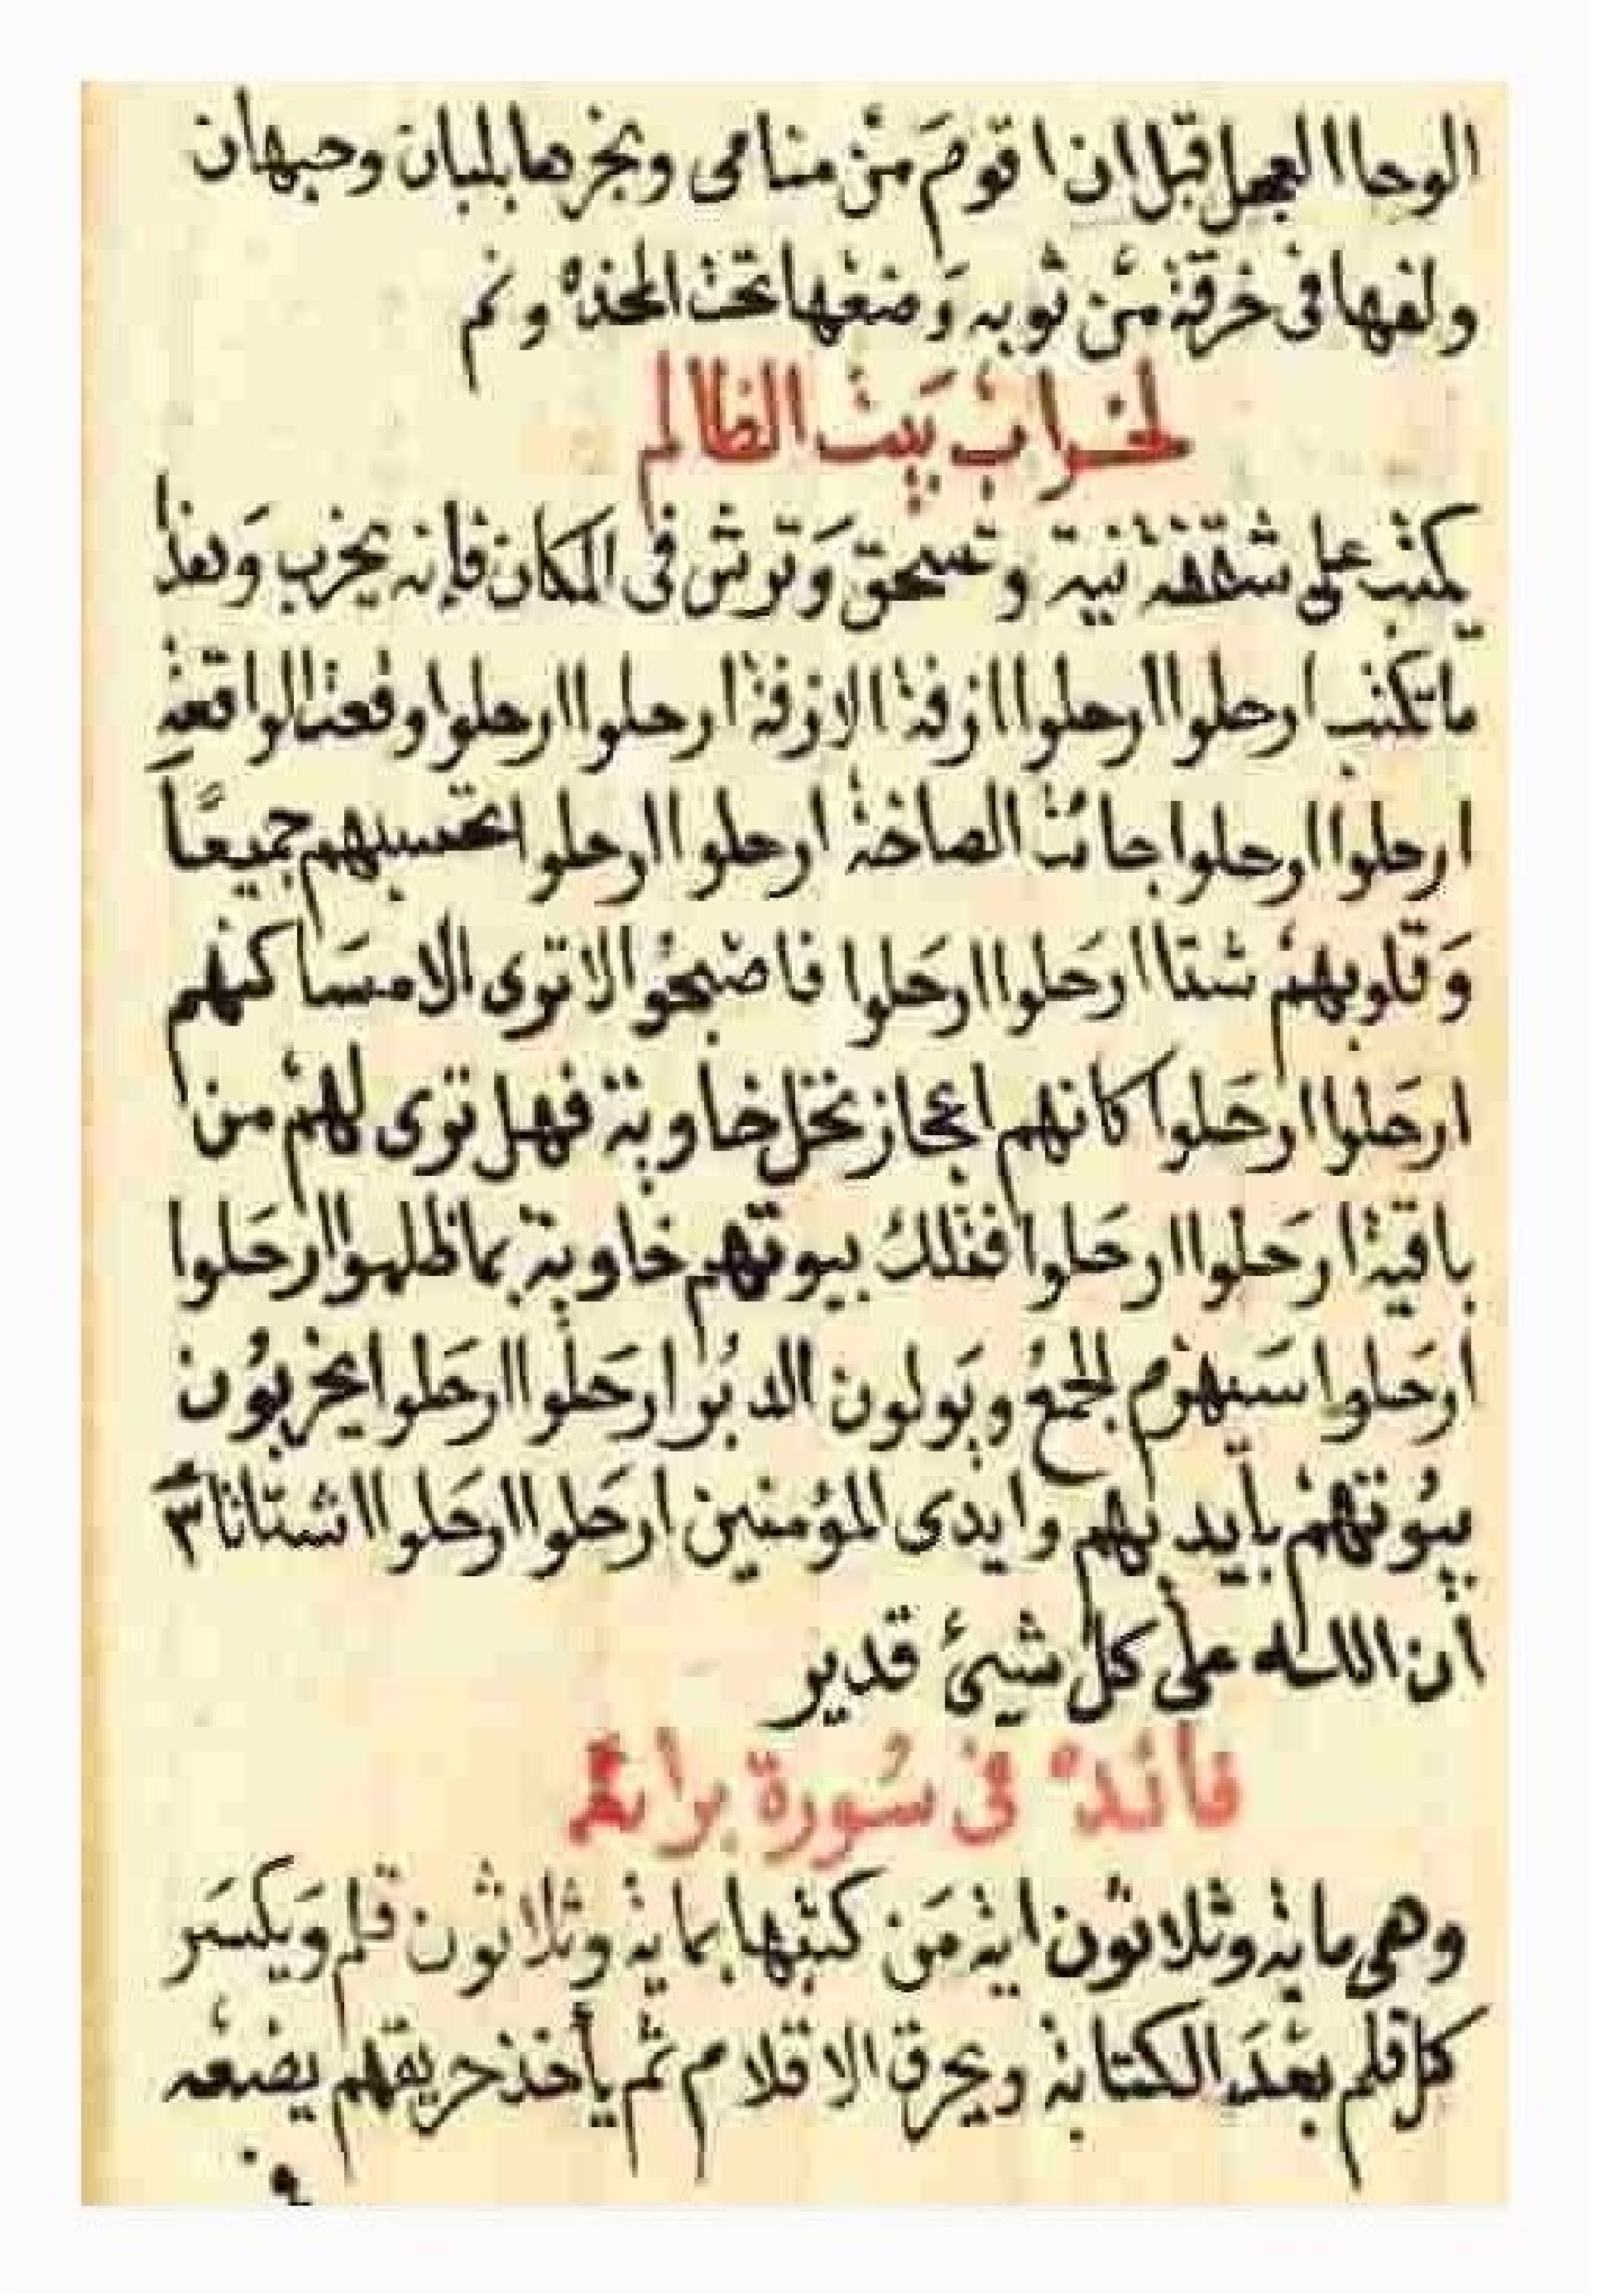 الوحا العجل قبل ان اقومَ منْ منامى وبخرها بلبان وحبهان
ولفها فى خرقة منْ ثوبه وَضعْها تحت المخده ونم
لخراب بيَت الظالم
يكتب على شقفه نيىة وتسحق وَترش فى المكان فإنه يخرب وَهذا
ما تكتب ارحلوا ارحلوا ازفة الازفة ارحلوا ارحلوا وقعت الواقعة
ارحلوا ارحلوا جائت الصاخة ارحلوا ارحلوا تحسبهم جميعًا
وَقلوبهمْ شتا ارَحلوا ارَحلوا فاصْبحُوا لا ترى الا مسَاكنهم
ارحَلوا ارحَلوا كانهم اعجاز نخل خاوية فهل ترى لهمْ من
باقية ارحَلوا ارحَلوا فتلك بيوتهم خاوية بما ظلموا ارحَلوا
ارحَلوا سَيهزم الجمعُ ويَولون الدبُر ارحَلوا ارحَلوا يخربوُن
بيوُتهمْ بأيديهم وايدى المؤمنين ارحَلوا ارحَلوا اشتاتا ٣
ان الله على كل شيئ قدير
فائده فى سُورة براءة
وهى ماية وثلاثون اية مَن كتبها بماية وثلاثون قلم وَيكسَر
كل قلم بعْدَ الكتابة ويحرق الاقلام ثم يأخذ حريقهم يضعْه